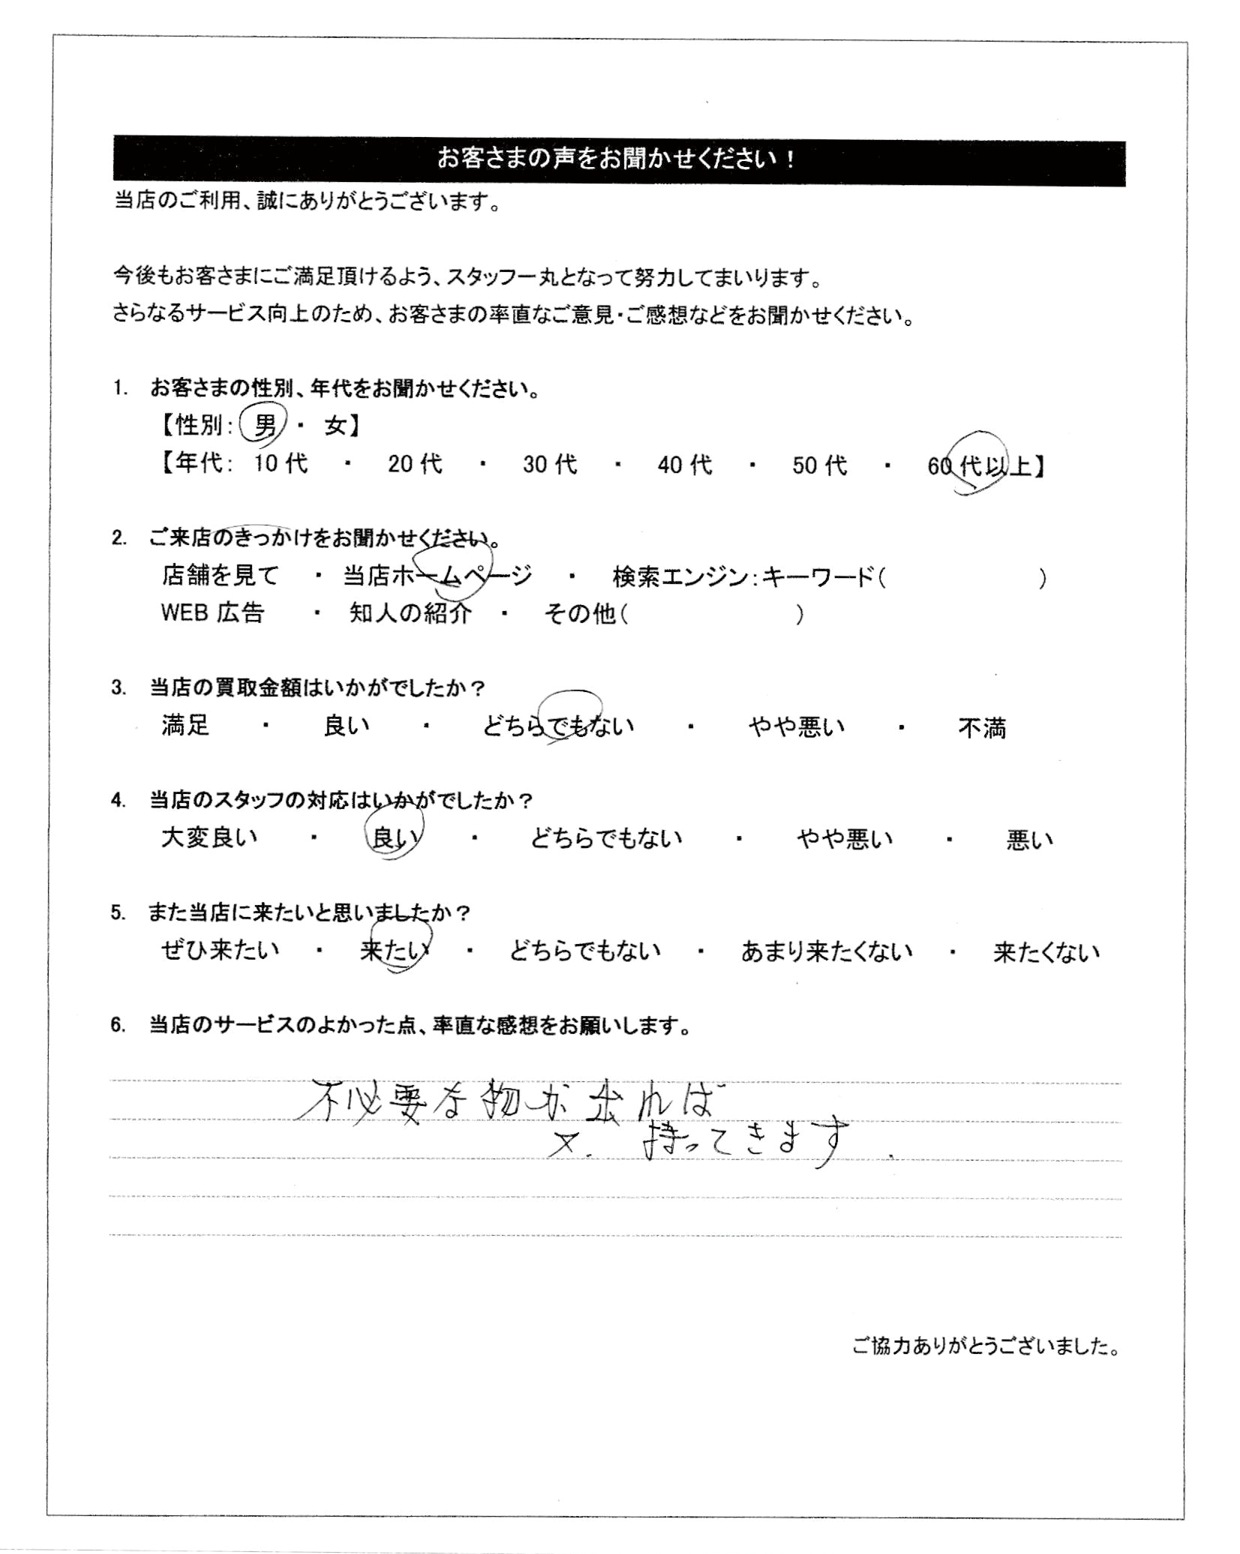 お客さまの声をお聞かせください！
当店のご利用、誠にありがとうございます。
今後もお客さまにご満足頂けるよう、スタッフ一丸となって努力してまいります。
さらなるサービス向上のため、お客さまの率直なご意見・ご感想などをお聞かせください。
1. お客さまの性別、年代をお聞かせください。
【性別： 男 ・ 女】
【年代： 10代 ・ 20代 ・ 30代 ・ 40代 ・ 50代 ・ 60代以上】
2. ご来店のきっかけをお聞かせください。
店舗を見て ・ 当店ホームページ ・ 検索エンジン：キーワード（ ）
WEB広告 ・ 知人の紹介 ・ その他（ ）
3. 当店の買取金額はいかがでしたか？
満足 ・ 良い ・ どちらでもない ・ やや悪い ・ 不満
4. 当店のスタッフの対応はいかがでしたか？
大変良い ・ 良い ・ どちらでもない ・ やや悪い ・ 悪い
5. また当店に来たいと思いましたか？
ぜひ来たい ・ 来たい ・ どちらでもない ・ あまり来たくない ・ 来たくない
6. 当店のサービスのよかった点、率直な感想をお願いします。
不必要な物が出れば
又、持ってきます.
ご協力ありがとうございました。